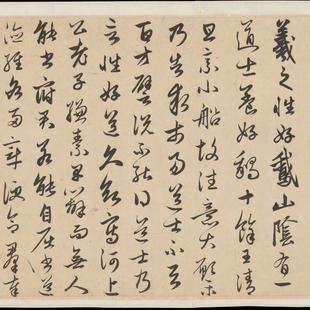 羲之性好鵝山陰有一
道士養好鵝十餘王清
旦乘小船故往意大願樂
乃告求市易道士不與
百方譬說不能得道士乃
言性好道久欲寫河上
公老子縑素早辦而無人
能書府君若能自屈書道
德經各兩章便合羣奉